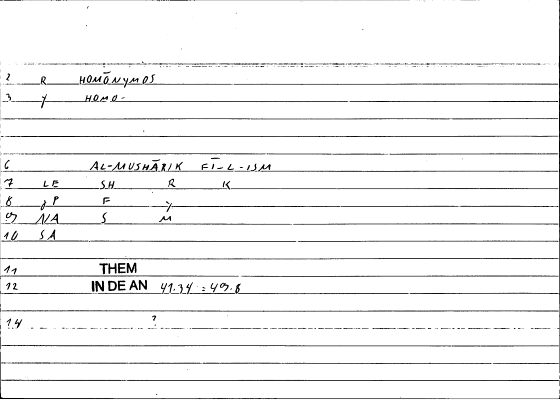 2 R HOMŌNYMOS
3 Y HOMO-
6 AL-MUSHĀRIK FĪ-L-ISM
7 LE SH R K
8 JP F Y
9 NA S M
10 SA
11 THEM
12 IN DE AN 41.34 : 49.8
14 ?